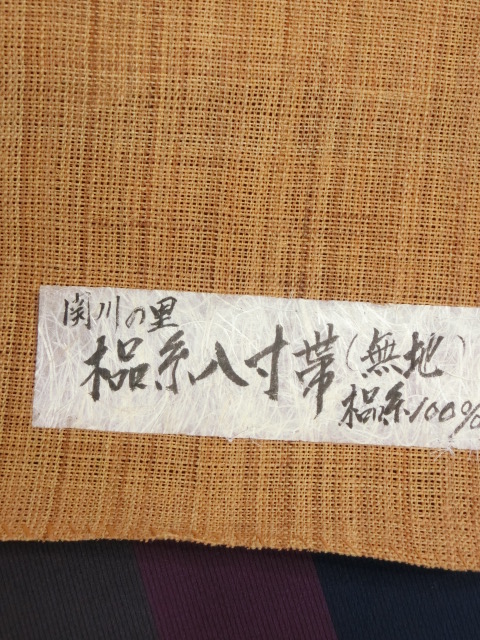 関川の里
榀糸八寸帯(無地)
榀糸100%